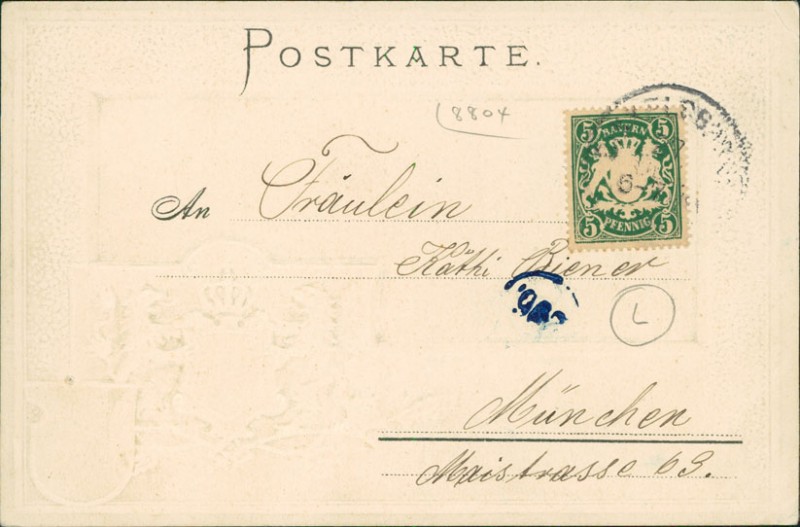 POSTKARTE.
8804
BAYERN
5 5
5 5
PFENNIG
An Fräulein
Käthi Biener
L
München
Maistrasse 63.